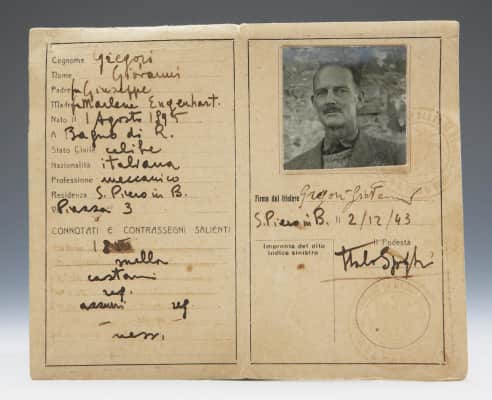 Cognome Gregori
Nome Giovanni
Padre fu Giuseppe
Madre fu Marlene Engenhart.
Nato il 1 Agosto 1895
A Bagno di R.
Stato Civile celibe
Nazionalità italiana
Professione meccanico
Residenza S. Piero in B.
Piazza 3
CONNOTATI E CONTRASSEGNI SALIENTI
snella
castani
reg.
azzurri reg
ness.
Firma del titolare Gregori Giovanni
S. Piero in B. li 2/12/43
Impronta del dito
indice sinistro
Il Podestà